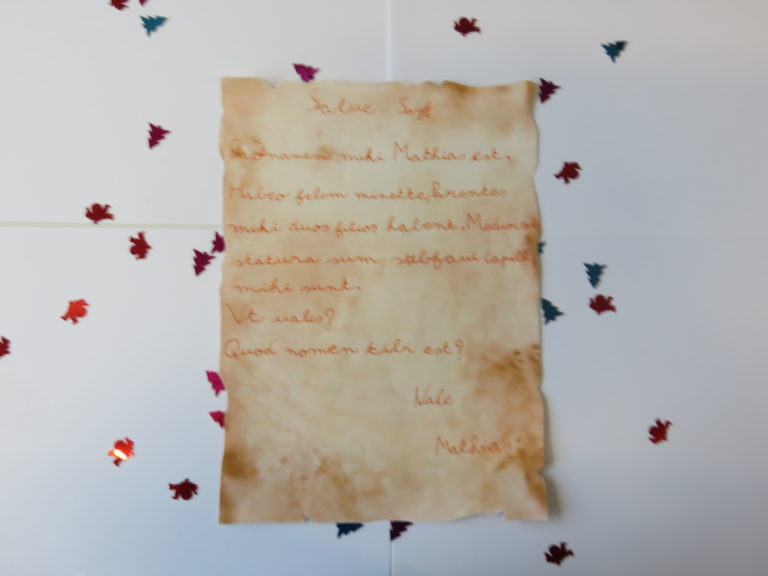 Salue
Praenomen mihi Mathias est.
Habeo felem minette, Parentes
mihi duos filios habent. Mediocri
statura sum, subflaui capilli
mihi sunt.
Vt uales?
Quod nomen tibi est?
Vale
Mathias